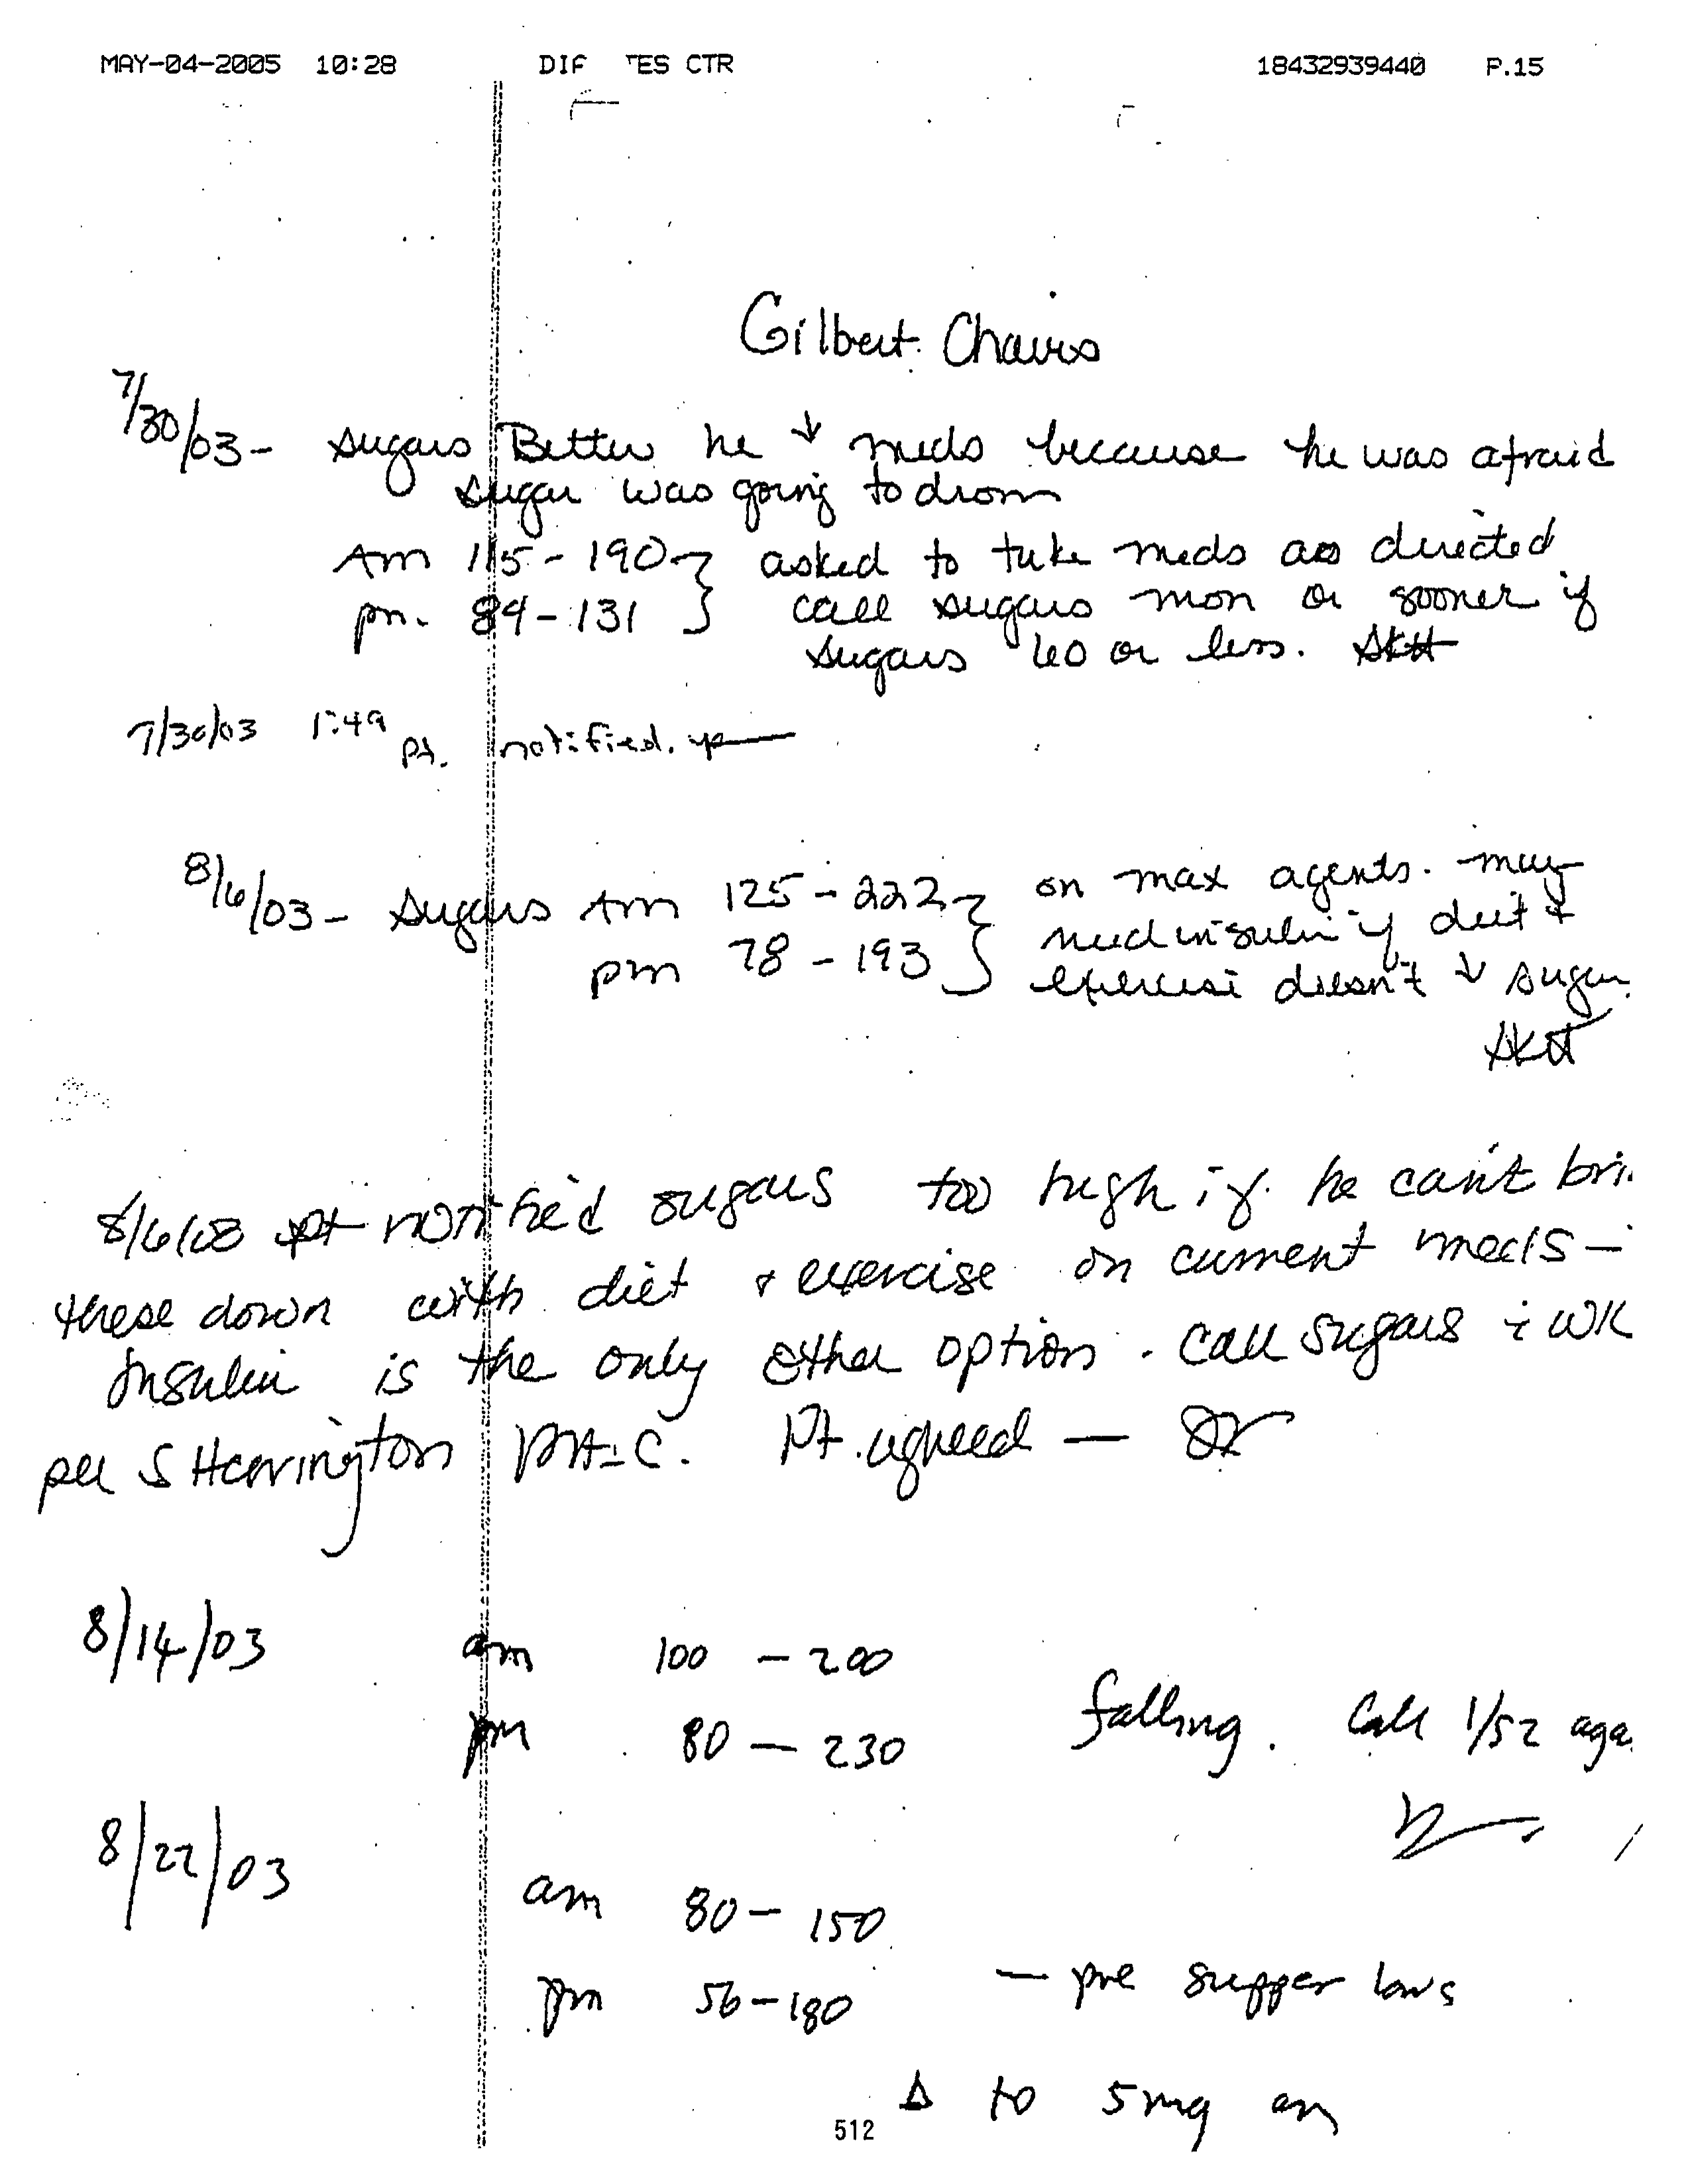 MAY-04-2005 10:28 DIF TES CTR 18432939440 P.15
Gilbert Chairs
7/30/03- Sugars Better he ↓ meds because he was afraid
sugar was going to drop
Am 115-190 } asked to take meds as directed
pm. 89-131 } call sugars mon or sooner if
sugars 60 or less. SKH
7/30/03 1:49 pt. notified.
8/6/03- Sugars Am 125-222 } on max agents. may
pm 78-193 } need insulin if diet +
exercise doesn't ↓ sugar.
SKH
8/6/03 pt notified sugars too high if he can't bri
these down with diet + exercise on current meds -
Insulin is the only other option. Call sugars i wk
per S Harrington PA-C. Pt. agreed —
8/14/03 am 100 - 200
pm 80 - 230 falling. Call 1/52 aga
8/22/03
am 80 - 150
pm 56-180 - pre supper lows
Δ to 5mg am
512